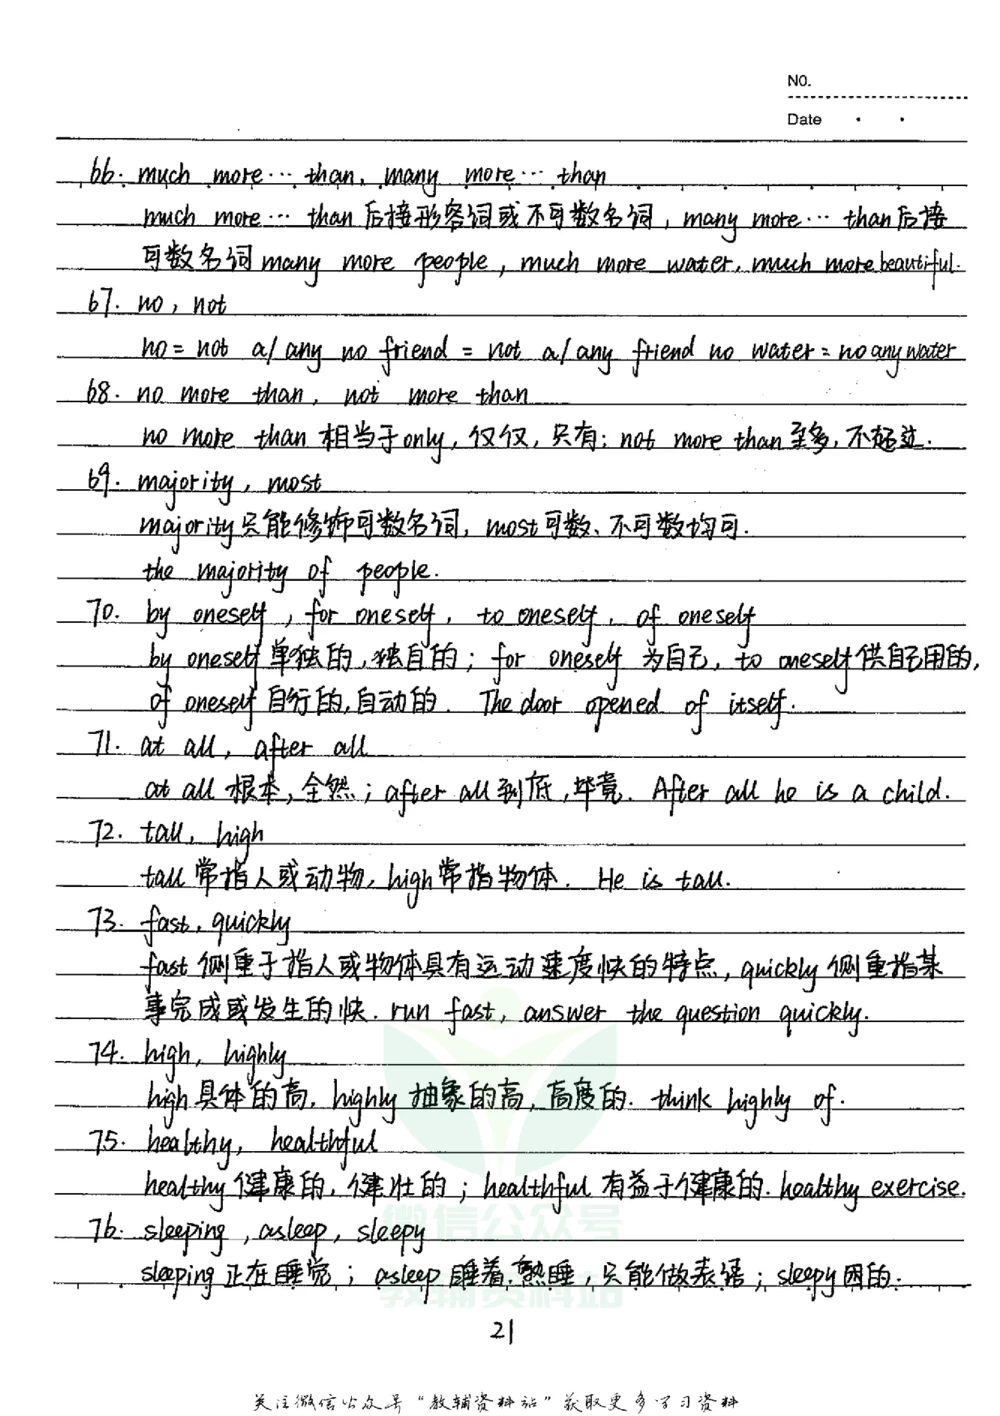 NO.
Date
66. much more… than, many more… than
much more… than后接形容词或不可数名词, many more… than后接
可数名词 many more people, much more water, much more beautiful.
67. no, not
no = not a/any no friend = not a/any friend no water = no any water
68. no more than, not more than
no more than 相当于only, 仅仅, 只有; not more than至多, 不超过.
69. majority, most
majority只能修饰可数名词, most可数、不可数均可.
the majority of people.
70. by oneself, for oneself, to oneself, of oneself
by oneself 单独的, 独自的; for oneself 为自己, to oneself供自己用的,
of oneself 自行的, 自动的. The door opened of itself.
71. at all, after all
at all 根本, 全然; after all到底, 毕竟. After all he is a child.
72. tall, high
tall 常指人或动物, high常指物体. He is tall.
73. fast, quickly
fast 侧重于指人或物体具有运动速度快的特点, quickly 侧重指某
事完成或发生的快. run fast, answer the question quickly.
74. high, highly
high 具体的高, highly 抽象的高, 高度的. think highly of.
75. healthy, healthful
healthy 健康的, 健壮的; healthful 有益于健康的. healthy exercise.
76. sleeping, asleep, sleepy
sleeping 正在睡觉; asleep 睡着, 熟睡, 只能做表语; sleepy 困的.
微信公众号
教辅资料站
21
关注微信公众号“教辅资料站”获取更多学习资料